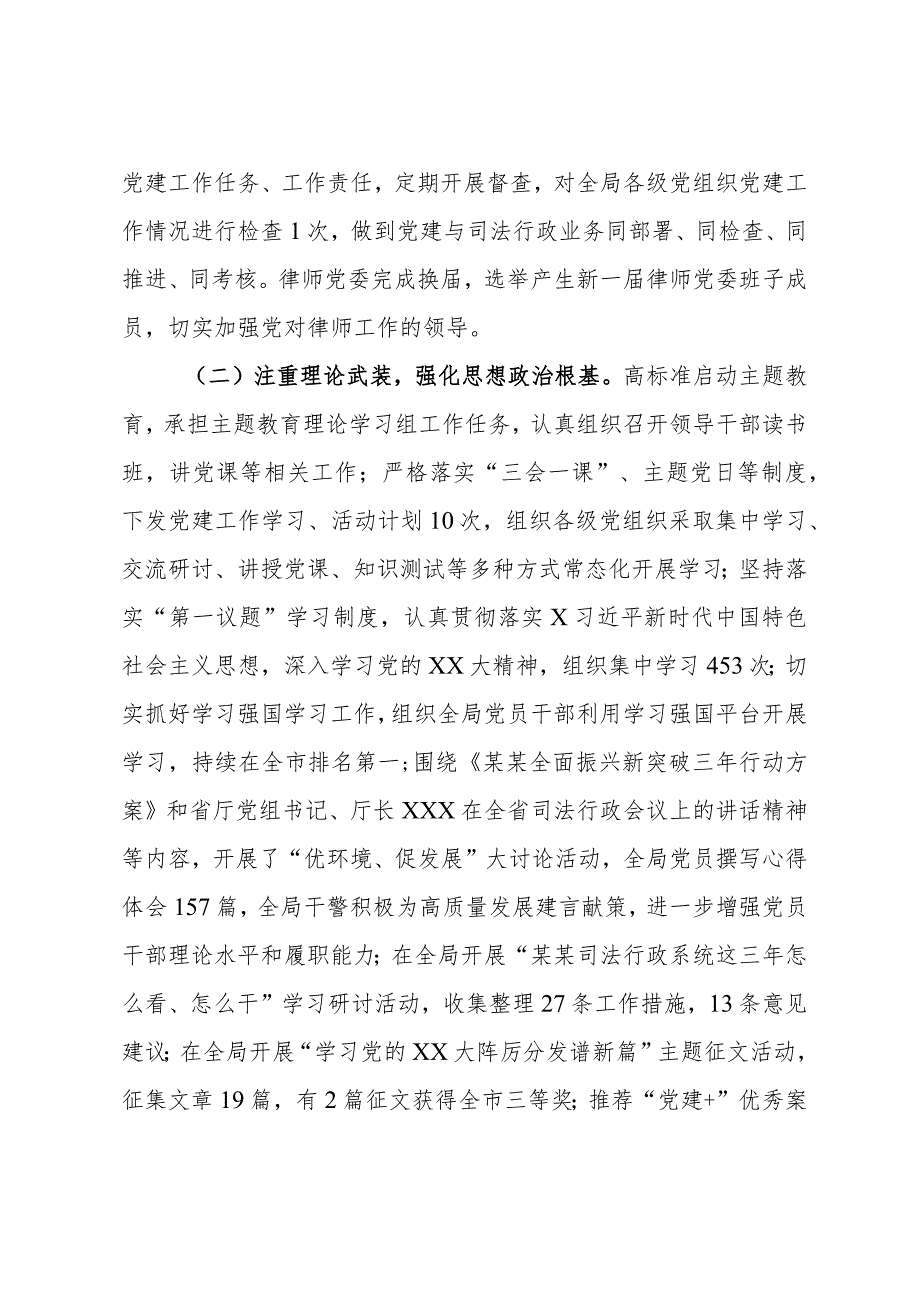 党建工作任务、工作责任，定期开展督查，对全局各级党组织党建工
作情况进行检查 1 次，做到党建与司法行政业务同部署、同检查、同
推进、同考核。律师党委完成换届，选举产生新一届律师党委班子成
员，切实加强党对律师工作的领导。
（二）注重理论武装，强化思想政治根基。高标准启动主题教
育，承担主题教育理论学习组工作任务，认真组织召开领导干部读书
班，讲党课等相关工作；严格落实“三会一课”、主题党日等制度，
下发党建工作学习、活动计划 10 次，组织各级党组织采取集中学习、
交流研讨、讲授党课、知识测试等多种方式常态化开展学习；坚持落
实“第一议题”学习制度，认真贯彻落实 X 习近平新时代中国特色
社会主义思想，深入学习党的 XX 大精神，组织集中学习 453 次；切
实抓好学习强国学习工作，组织全局党员干部利用学习强国平台开展
学习，持续在全市排名第一；围绕《某某全面振兴新突破三年行动方
案》和省厅党组书记、厅长 XXX 在全省司法行政会议上的讲话精神
等内容，开展了“优环境、促发展”大讨论活动，全局党员撰写心得
体会 157 篇，全局干警积极为高质量发展建言献策，进一步增强党员
干部理论水平和履职能力；在全局开展“某某司法行政系统这三年怎
么看、怎么干”学习研讨活动，收集整理 27 条工作措施，13 条意见
建议；在全局开展“学习党的 XX 大阵厉分发谱新篇”主题征文活动，
征集文章 19 篇，有 2 篇征文获得全市三等奖；推荐“党建+”优秀案